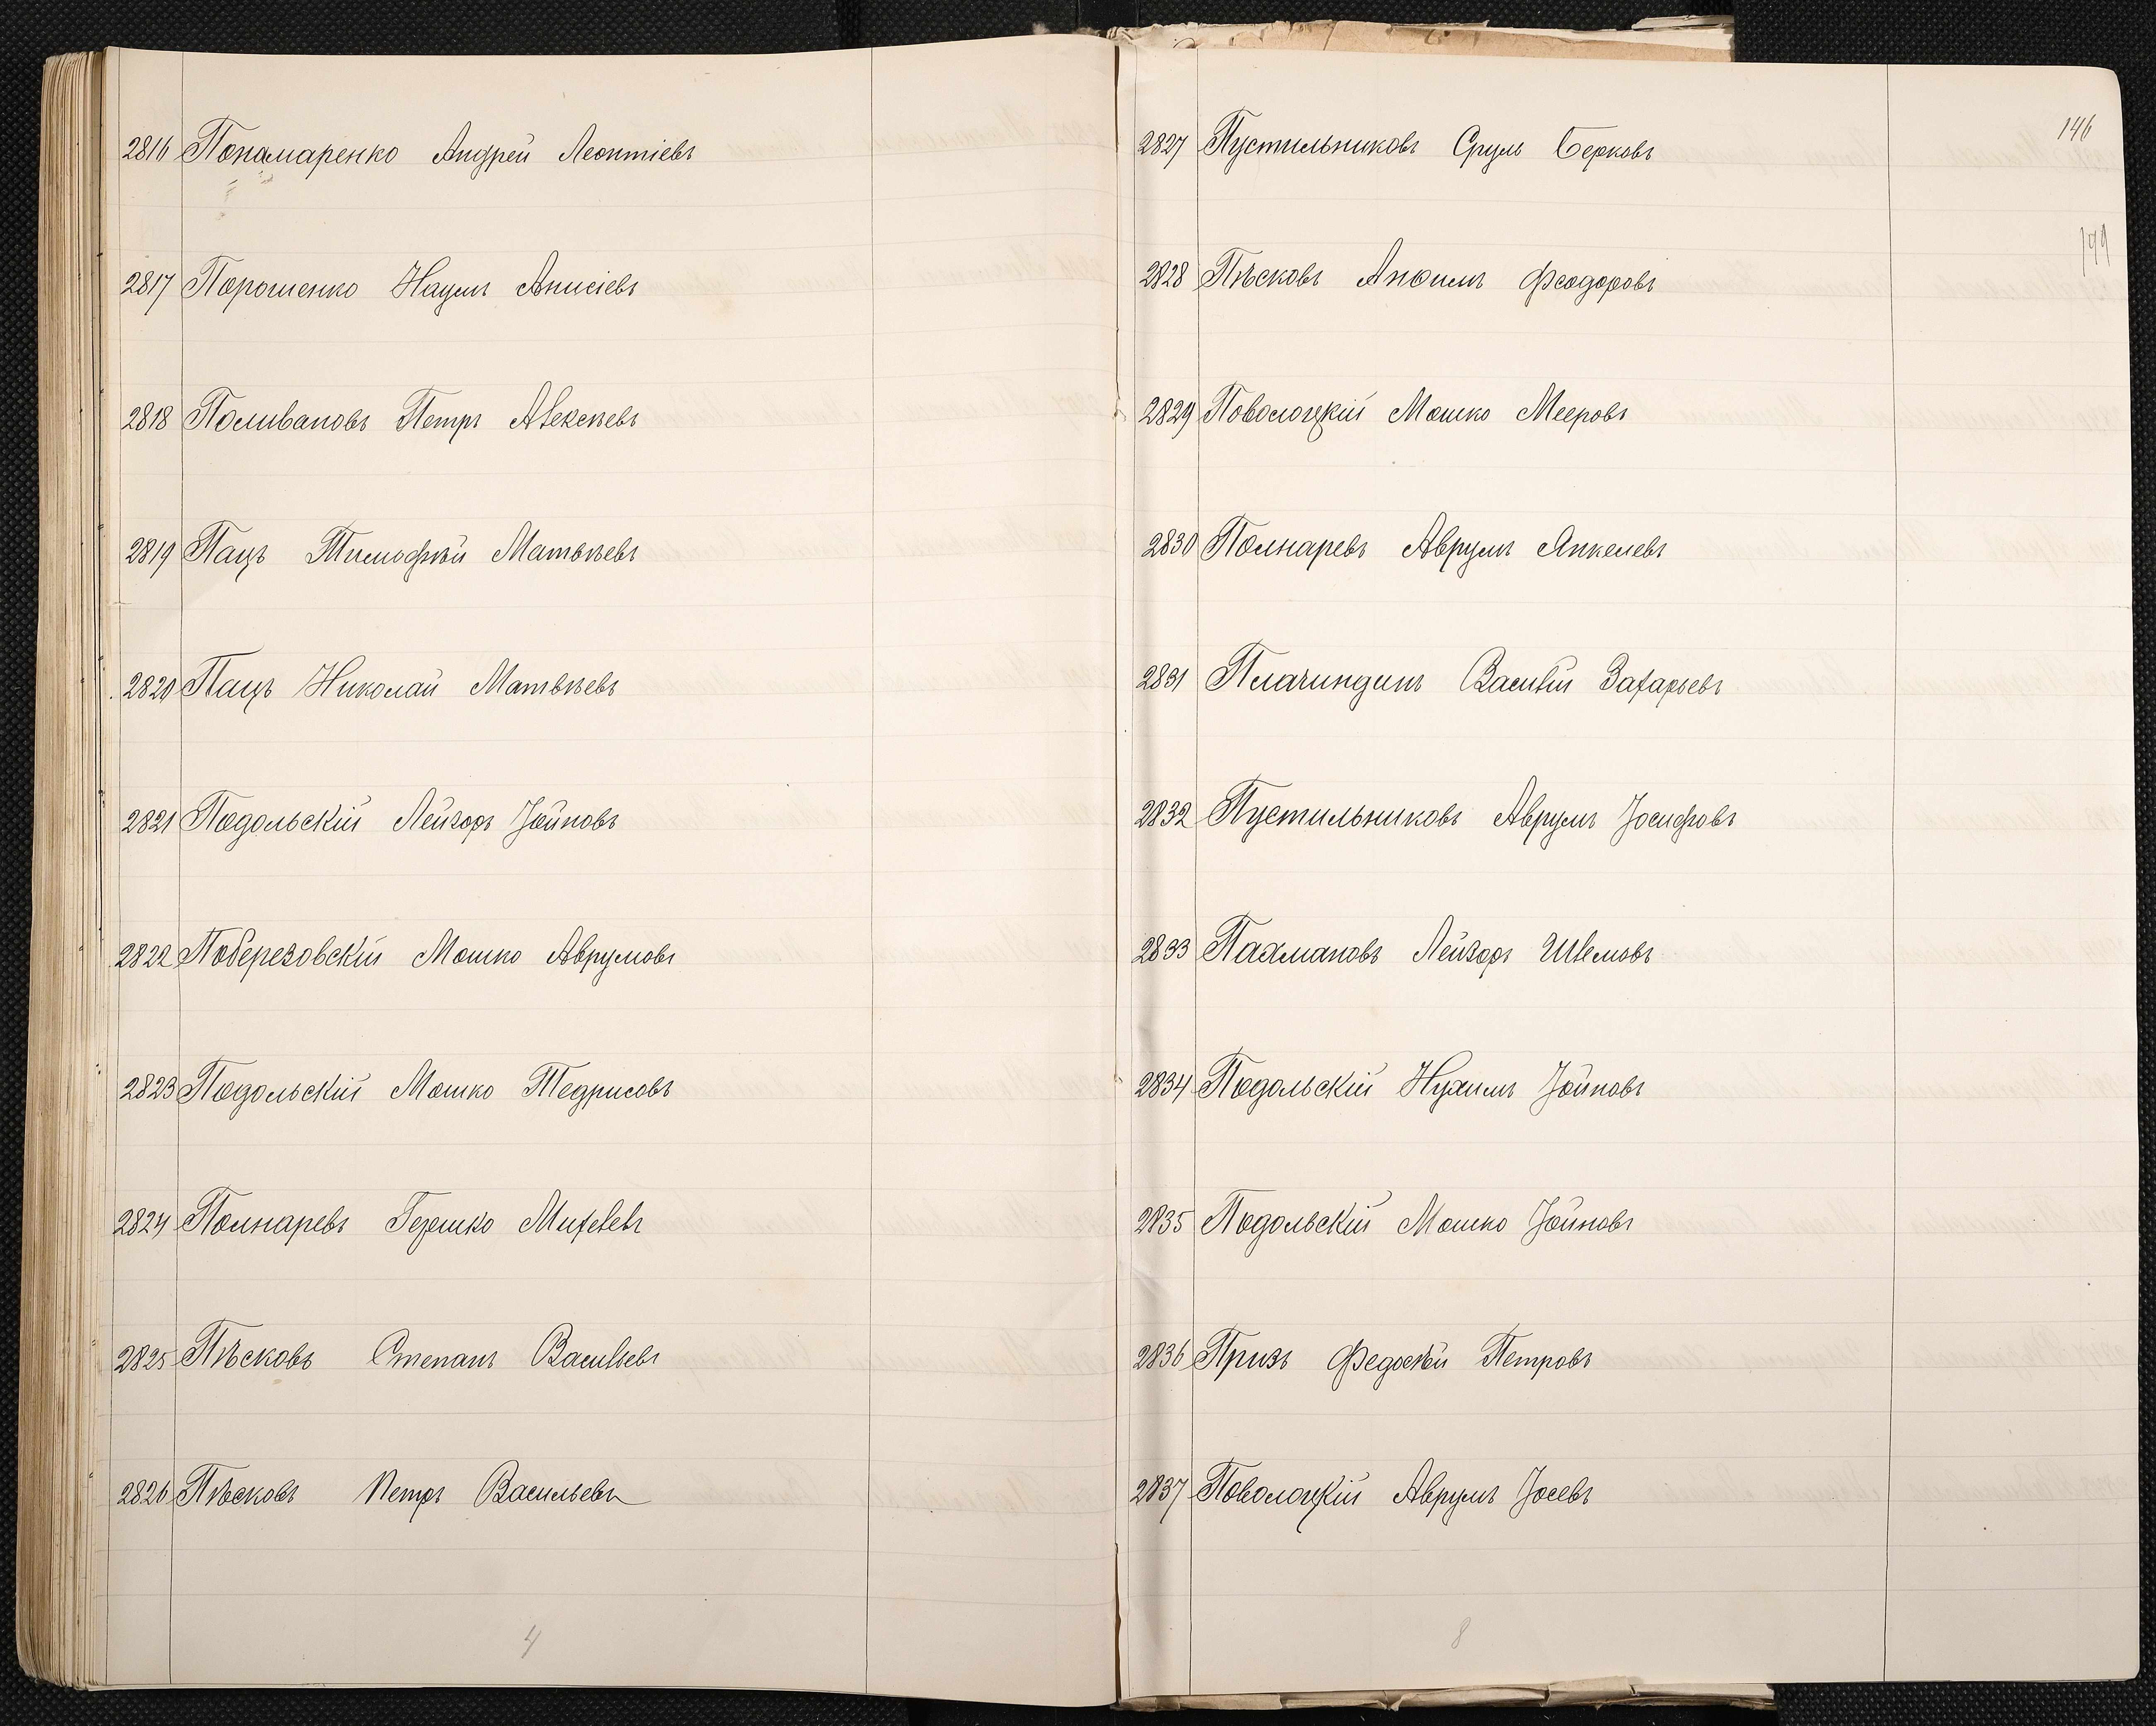 2816 Понамаренко Андрей Леонтіевъ
2817 Порошенко Наумъ Анисіевъ
2818 Поливановъ Петръ Алексѣевъ
2819 Пацъ Тимофѣй Матвѣевъ
2820 Пацъ Николай Матвѣевъ
2821 Подольскій Лейзоръ Іойновъ
2822 Поберезовскій Мошко Аврумовъ
2823 Подольскій Мошко Тедрисовъ
2824 Полнаревъ Гершко Михелевъ
2825 Пѣсковъ Степанъ Васильевъ
2826 Пѣсковъ Петръ Васильевъ
4
146
2827 Пустильниковъ Сруль Берковъ
2828 Пѣсковъ Анѳимъ Феодоровъ
2829 Поволоцкій Мошко Мееровъ
2830 Полнаревъ Аврумъ Янкелевъ
2831 Плачиндинъ Василій Захарьевъ
2832 Пустильниковъ Аврумъ Іосифовъ
2833 Пахмановъ Лейзоръ Шлемовъ
2834 Подольскій Нухимъ Іойновъ
2835 Подольскій Мошко Іойновъ
2836 Призъ Федосѣй Петровъ
2837 Поволоцкій Аврумъ Іосевъ
8